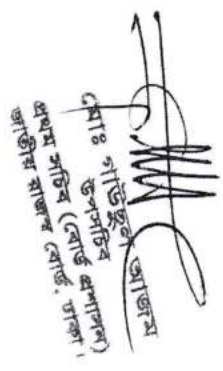 মোঃ গাউছুল আজম
উপসচিব
প্রথম সচিব (বোর্ড প্রশাসন)
জাতীয় রাজস্ব বোর্ড, ঢাকা।